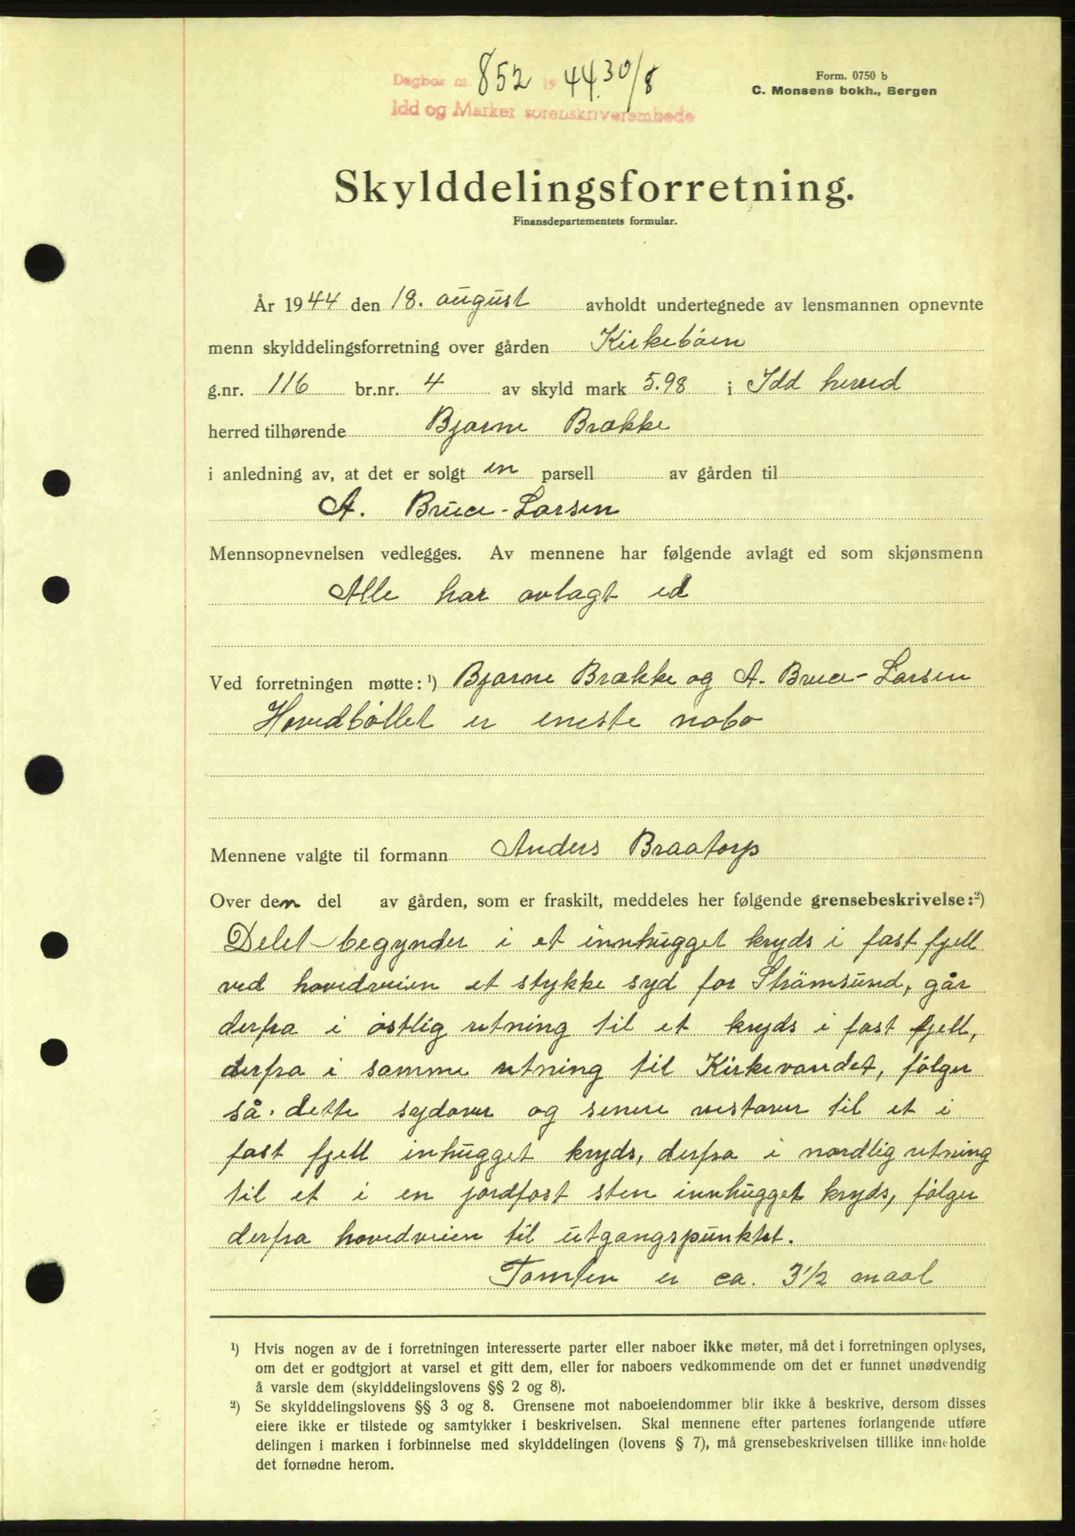 Dagbok nr. 852 1944. 30/8
Idd og Marker sorenskriverembede
Form. 0750 b
C. Monsens bokh., Bergen
Skylddelingsforretning.
Finansdepartementets formular.
År 1944 den 18. august avholdt undertegnede av lensmannen opnevnte
menn skylddelingsforretning over gården Kirkebøen
g.nr. 116 br.nr. 4 av skyld mark 5.98 i Idd herred
herred tilhørende Bjarne Brække
i anledning av, at det er solgt en parsell av gården til
A. Bruce-Larsen
Mennsopnevnelsen vedlegges. Av mennene har følgende avlagt ed som skjønsmenn
Alle har avlagt ed
Ved forretningen møtte: ¹) Bjarne Brække og A. Bruce-Larsen
Hovedbøllet er eneste nabo
Mennene valgte til formann Anders Braatorp
Over den del av gården, som er fraskilt, meddeles her følgende grensebeskrivelse: ²)
Delet begynder i et innhugget kryds i fast fjell
ved hovedveien et stykke syd for Strømsund, går
derfra i østlig retning til et kryds i fast fjell,
derfra i samme retning til Kirkevandet, følger
så dette sydover og senere vestover til et i
fast fjell inhugget kryds, derfra i nordlig retning
til et i en jordfast sten innhugget kryds, følger
derfra hovedveien til utgangspunktet.
Tomten er ca. 3 1/2 maal
¹) Hvis nogen av de i forretningen interesserte parter eller naboer ikke møter, må det i forretningen oplyses,
om det er godtgjort at varsel et gitt dem, eller for naboers vedkommende om det er funnet unødvendig
å varsle dem (skylddelingslovens §§ 2 og 8).
²) Se skylddelingslovens §§ 3 og 8. Grensene mot naboeiendommer blir ikke å beskrive, dersom disses
eiere ikke er tilstede og samtykker i beskrivelsen. Skal mennene efter partenes forlangende utføre
delingen i marken i forbinnelse med skylddelingen (lovens § 7), må grensebeskrivelsen tillike inneholde
det fornødne herom.